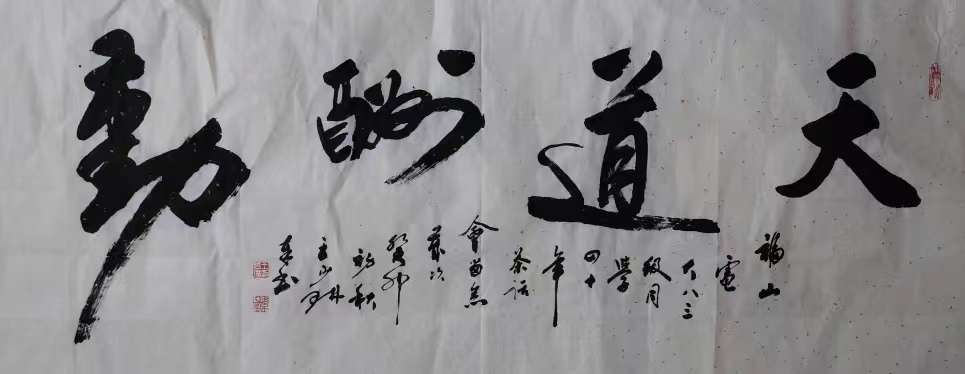 天道酬勤
福山
電
大八三
级同
學
四十
年
茶话
會留念
歲次
癸卯
初秋